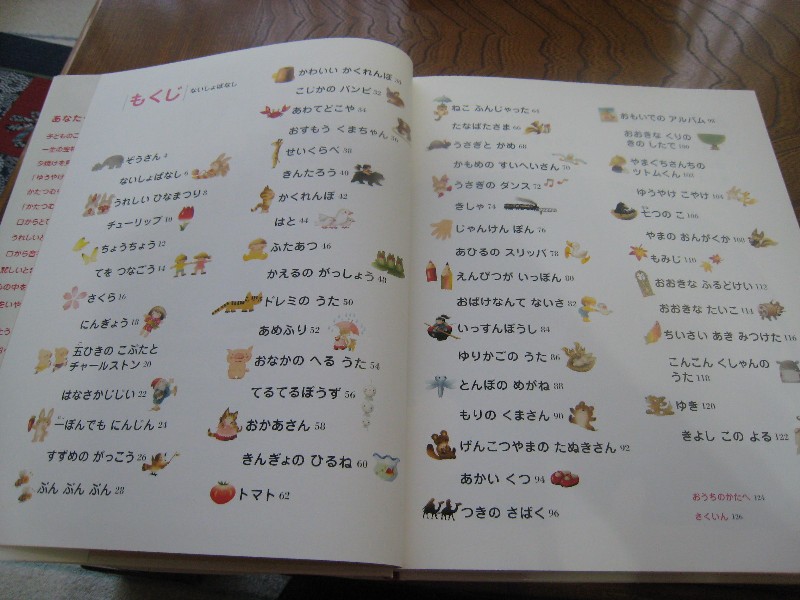 あなた
子どものこ
もくじ
ないしょばなし
ぞうさん 4
ないしょばなし 6
うれしい ひなまつり 8
チューリップ 10
ちょうちょう 12
てを つなごう 14
さくら 16
にんぎょう 18
五ひきの こぶたと
チャールストン 20
はなさかじじい 22
一ぽんでも にんじん 24
すずめの がっこう 26
ぶん ぶん ぶん 28
かわいい かくれんぼ 30
こじかの バンビ 32
あわてどこや 34
おすもう くまちゃん 36
せいくらべ 38
きんたろう 40
かくれんぼ 42
はと 44
ふたあつ 46
かえるの がっしょう 48
ドレミの うた 50
あめふり 52
おなかの へる うた 54
てるてるぼうず 56
おかあさん 58
きんぎょの ひるね 60
トマト 62
ねこ ふんじゃった 64
たなばたさま 66
うさぎと かめ 68
かもめの すいへいさん 70
うさぎの ダンス 72
きしゃ 74
じゃんけん ぽん 76
あひるの スリッパ 78
えんぴつが いっぽん 80
おばけなんて ないさ 82
いっすんぼうし 84
ゆりかごの うた 86
とんぼの めがね 88
もりの くまさん 90
げんこつやまの たぬきさん 92
あかい くつ 94
つきの さばく 96
おもいでの アルバム 98
おおきな くりの
きの したで 100
やまぐちさんちの
ツトムくん 102
ゆうやけ こやけ 104
七つの こ 106
やまの おんがくか 108
もみじ 110
おおきな ふるどけい 112
おおきな たいこ 114
ちいさい あき みつけた 116
こんこん くしゃんの
うた 118
ゆき 120
きよし この よる 122
おうちのかたへ 124
さくいん 126